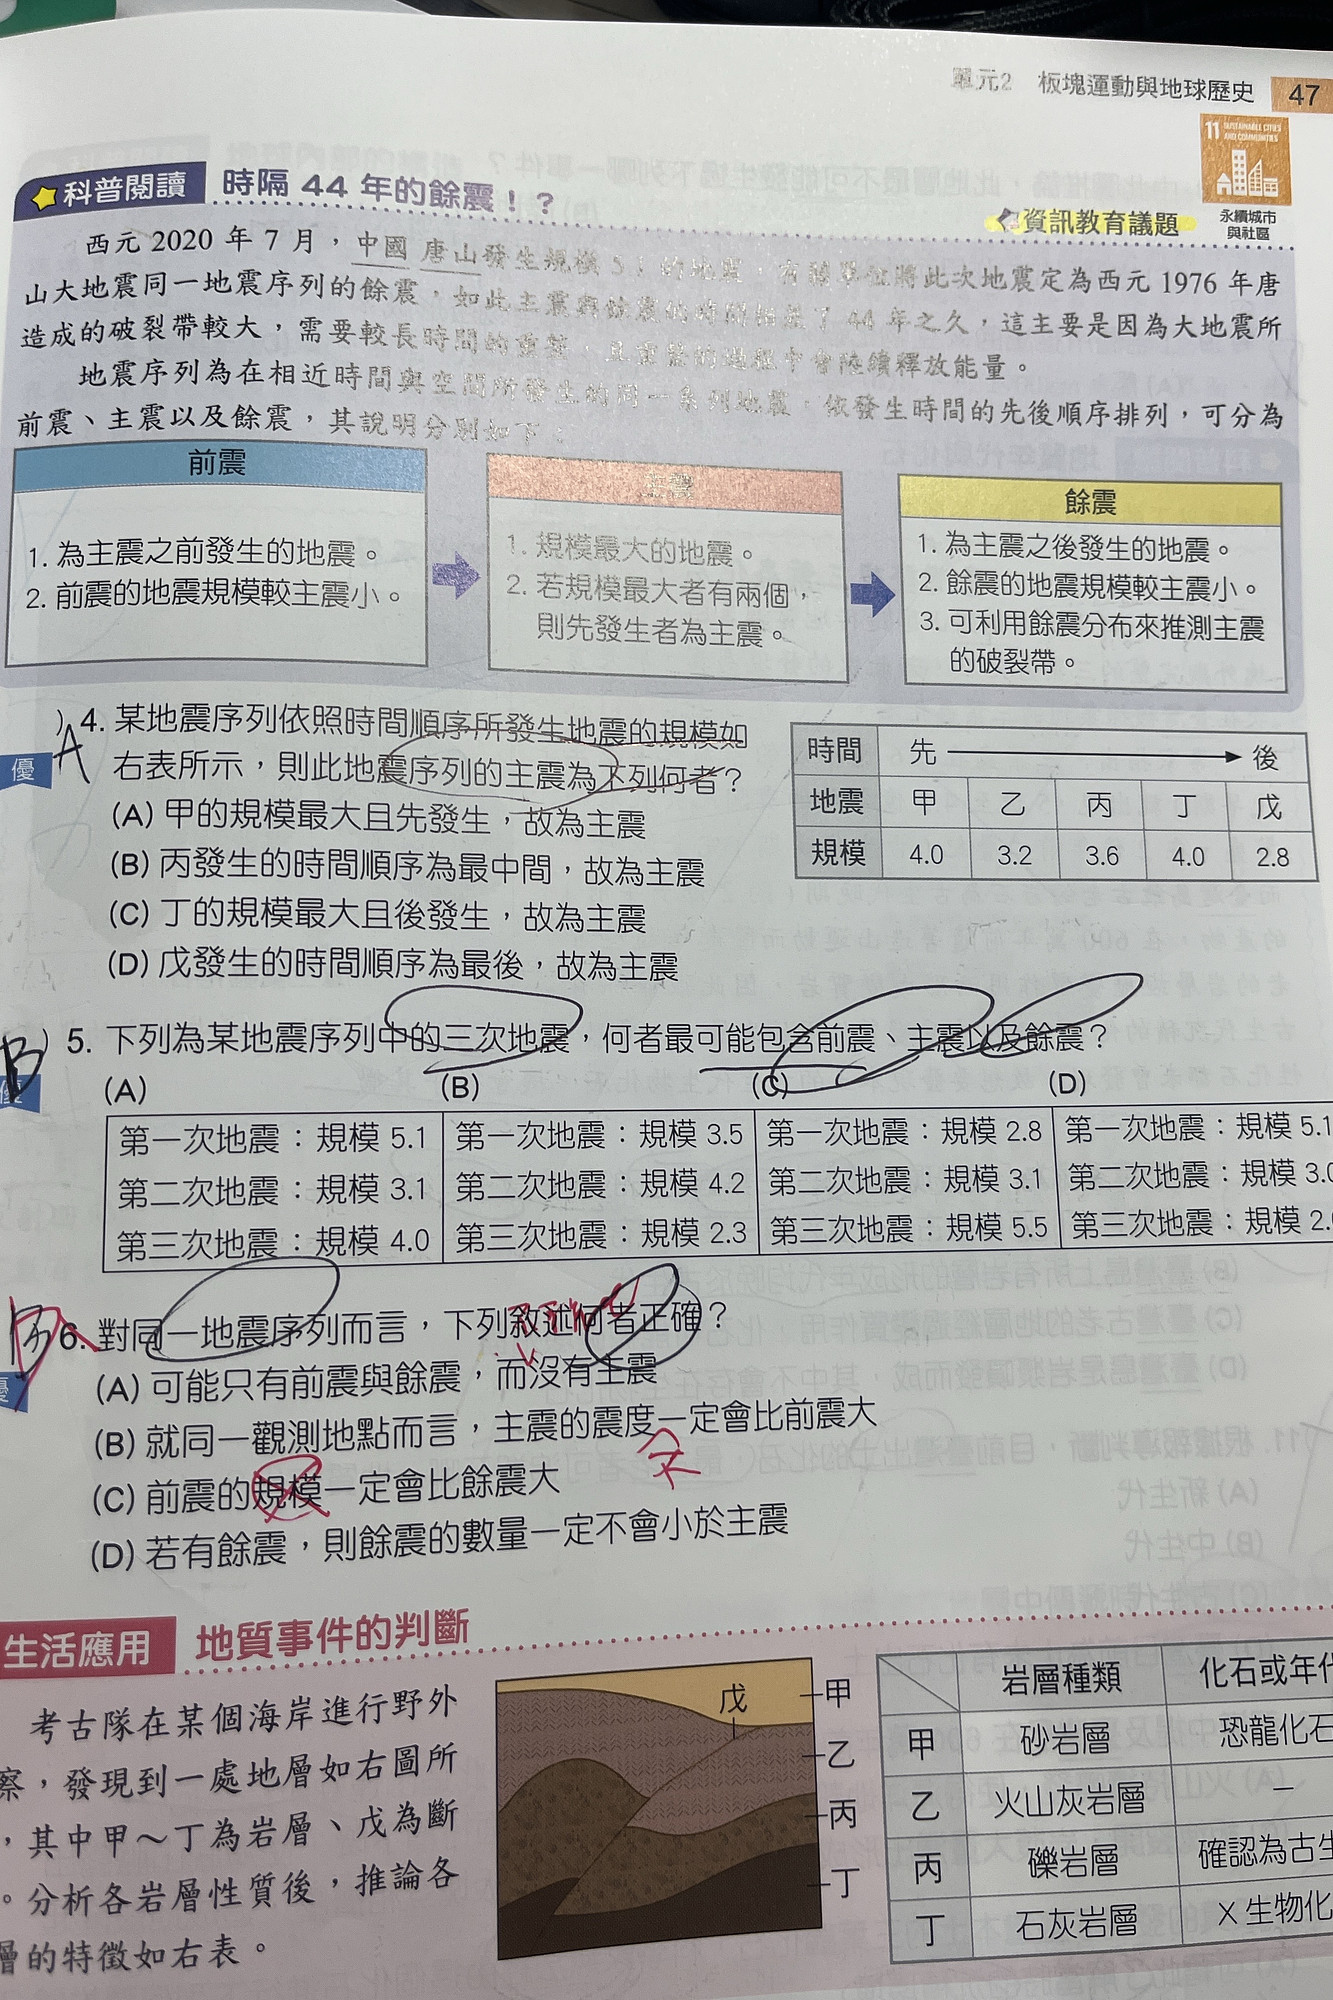 單元2 板塊運動與地球歷史 47
11 SUSTAINABLE CITIES AND COMMUNITIES
永續城市
與社區
科普閱讀 時隔 44 年的餘震!?
資訊教育議題
西元 2020 年 7 月,中國 唐山發生規模 5.1 的地震,有關單位將此次地震定為西元 1976 年唐
山大地震同一地震序列的餘震,如此主震與餘震的時間相差了 44 年之久,這主要是因為大地震所
造成的破裂帶較大,需要較長時間的重整,且重整的過程中會陸續釋放能量。
地震序列為在相近時間與空間所發生的同一系列地震,依發生時間的先後順序排列,可分為
前震、主震以及餘震,其說明分別如下:
前震
1. 為主震之前發生的地震。
2. 前震的地震規模較主震小。
主震
1. 規模最大的地震。
2. 若規模最大者有兩個,
則先發生者為主震。
餘震
1. 為主震之後發生的地震。
2. 餘震的地震規模較主震小。
3. 可利用餘震分布來推測主震
的破裂帶。
優
A
)4. 某地震序列依照時間順序所發生地震的規模如
右表所示,則此地震序列的主震為下列何者?
(A) 甲的規模最大且先發生,故為主震
(B) 丙發生的時間順序為最中間,故為主震
(C) 丁的規模最大且後發生,故為主震
(D) 戊發生的時間順序為最後,故為主震
時間 先 後
地震 甲 乙 丙 丁 戊
規模 4.0 3.2 3.6 4.0 2.8
B
優
)5. 下列為某地震序列中的三次地震,何者最可能包含前震、主震以及餘震?
(A) (B) (C) (D)
第一次地震:規模 5.1 第一次地震:規模 3.5 第一次地震:規模 2.8 第一次地震:規模 5.1
第二次地震:規模 3.1 第二次地震:規模 4.2 第二次地震:規模 3.1 第二次地震:規模 3.0
第三次地震:規模 4.0 第三次地震:規模 2.3 第三次地震:規模 5.5 第三次地震:規模 2.
6. 對同一地震序列而言,下列敘述何者正確?
(A) 可能只有前震與餘震,而沒有主震
(B) 就同一觀測地點而言,主震的震度一定會比前震大
(C) 前震的規模一定會比餘震大
(D) 若有餘震,則餘震的數量一定不會小於主震
生活應用 地質事件的判斷
考古隊在某個海岸進行野外
察,發現到一處地層如右圖所
,其中甲~丁為岩層、戊為斷
。分析各岩層性質後,推論各
層的特徵如右表。
戊
甲
乙
丙
丁
岩層種類 化石或年代
甲 砂岩層 恐龍化石
乙 火山灰岩層 —
丙 礫岩層 確認為古生
丁 石灰岩層 X 生物化